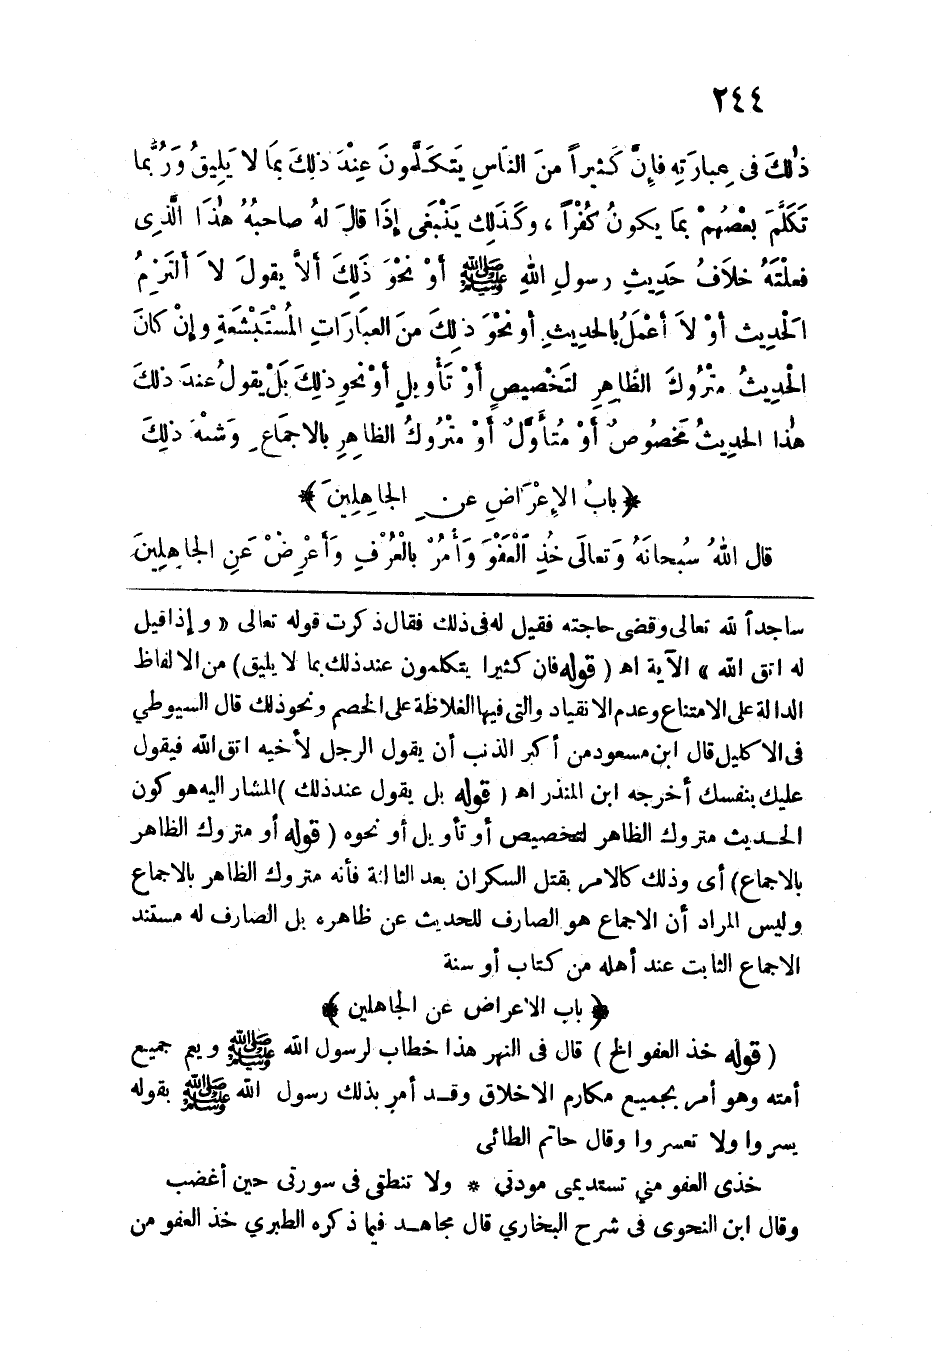 ٢٤٤
ذٰلكَ فى عِبارَتِه فإِنَّ كَثيراً منَ النَّاسِ يَتكلَّمونَ عِنْدَ ذلِكَ بمَا لا يَلِيقُ وَرُبَّما
تَكَلَّمَ بعْضُهُمْ بمَا يكونُ كُفْراً ، وكَذلِك يَنْبغَى إِذَا قالَ لهُ صاحبهُ هٰذَا الَّذِى
فعلْتَهُ خلافُ حَديثِ رسولِ اللهِ ﷺ أوْ نحْوَ ذَلِكَ ألاَّ يقولَ لاَ ألتَزِمُ
الحْدِيث أوْ لاَ أعْمَلُ بالحديثِ أو نحْوَ ذلِكَ منَ العبَارَاتِ المُسْتَبْشَعَةِ وإنْ كانَ
الحْدِيثُ متْرُوكَ الظَّاهِرِ لتَخْصيصٍ أوْ تَأْويلٍ أوْ نحوِ ذلِكَ بَلْ يقولُ عندَ ذلكَ
هٰذا الحديثُ مَخصُوصٌ أوْ مُتأَوَّلٌ أوْ متْرُوكُ الظاهِرِ بالاجماعِ وَشبْهَ ذلِكَ
﴿ بابُ الإِعْرَاضِ عنِ الجَاهِلِينَ ﴾
قال اللهُ سُبحانَهُ وَتعالَى خُذِ الْعَفْوَ وَأْمُرْ بالْعُرْفِ وَأعْرِضْ عَنِ الجَاهِلِينَ
ساجداً لله تعالى وقضى حاجته فقيل له فى ذلك فقال ذكرت قوله تعالى « وإذا قيل
له اتق الله » الآية اه ( قوله فان كثيرا يتكلمون عند ذلك بما لا يليق) من الالفاظ
الدالة على الامتناع وعدم الانقياد والتى فيها الغلاظة على الخصم ونحو ذلك قال السيوطي
فى الاكليل قال ابن مسعود من أكبر الذنب أن يقول الرجل لأخيه اتق الله فيقول
عليك بنفسك أخرجه ابن المنذر اه ( قوله بل يقول عند ذلك ) المشار اليه هو كون
الحديث متروك الظاهر لتخصيص أو تأويل أو نحوه ( قوله أو متروك الظاهر
بالاجماع) أى وذلك كالامر بقتل السكران بعد الثالثة فأنه متروك الظاهر بالاجماع
وليس المراد أن الاجماع هو الصارف للحديث عن ظاهره بل الصارف له مستند
الاجماع الثابت عند أهله من كتاب أو سنة
﴿ باب الاعراض عن الجاهلين ﴾
( قوله خذ العفو الخ ) قال فى النهر هذا خطاب لرسول الله ﷺ ويعم جميع
أمته وهو أمر بجميع مكارم الاخلاق وقد أمر بذلك رسول الله ﷺ بقوله
يسروا ولا تعسروا وقال حاتم الطائى
خذى العفو مني تستديمى مودتي * ولا تنطقى فى سورتى حين أغضب
وقال ابن النحوى فى شرح البخاري قال مجاهد فيما ذكره الطبري خذ العفو من